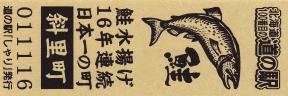 北海道
道の駅
鮭
鮭水揚げ
16年連続
日本一の町
斜里町
0111116
道の駅「しゃり」発行